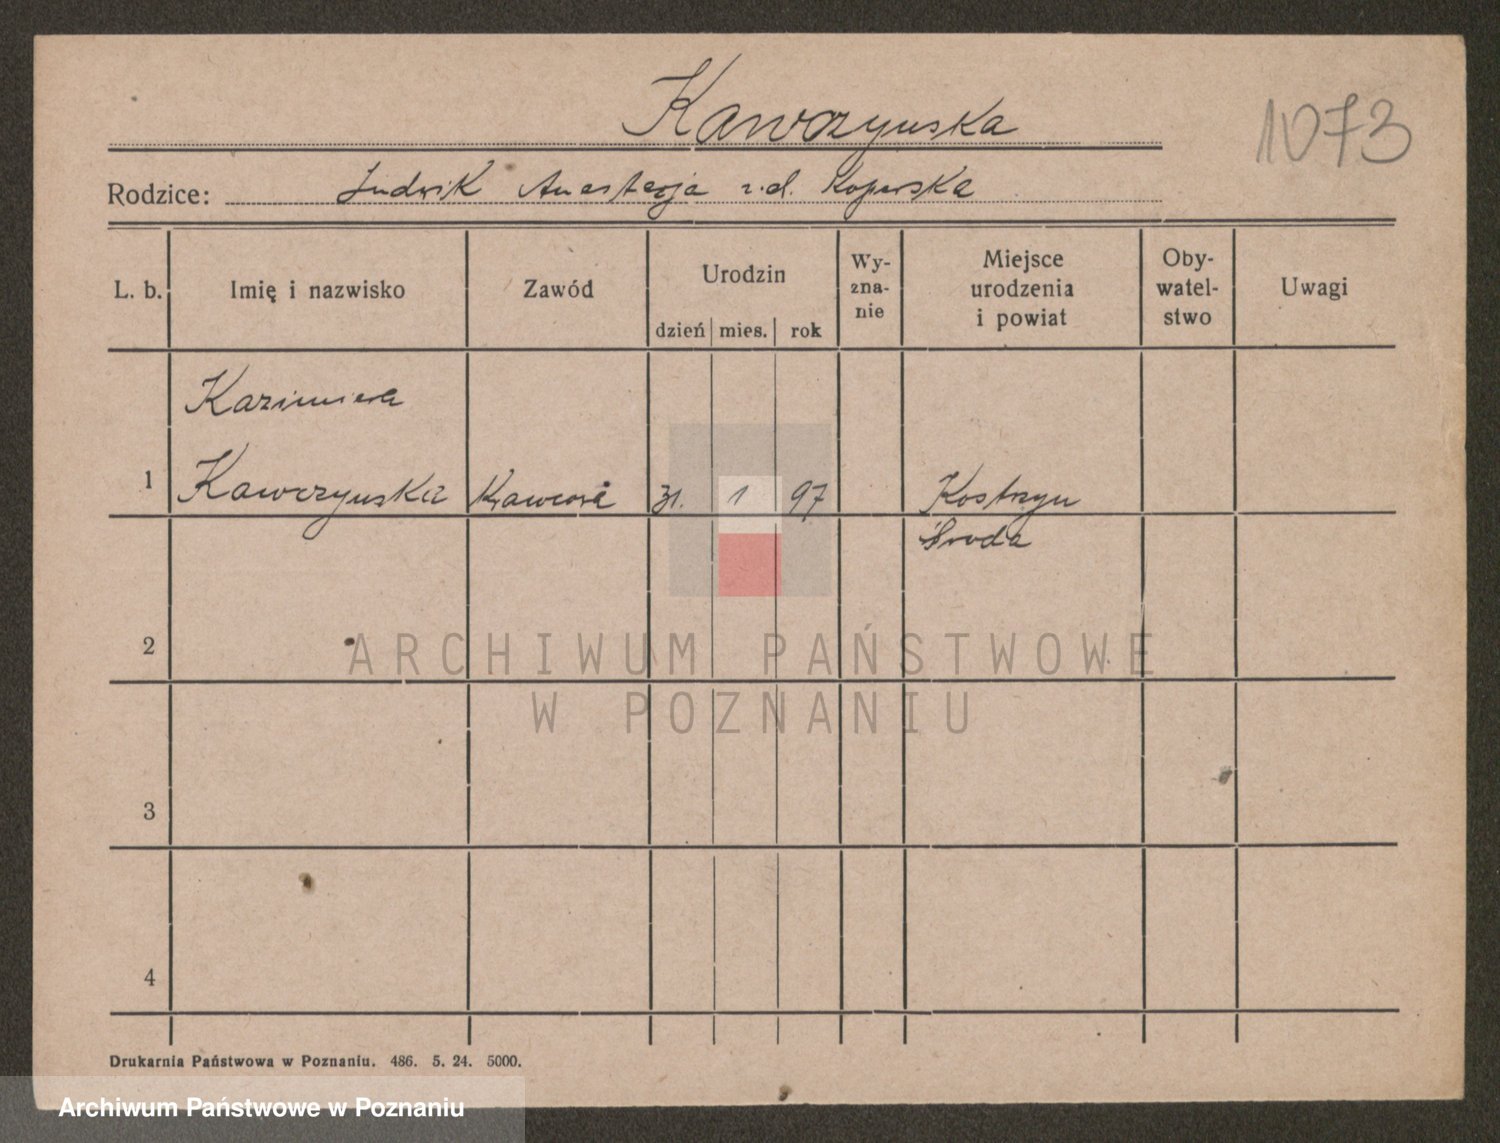 Kawczyńska
1073
Rodzice: Ludwik Anastazja z.d. Koperska
L. b. Imię i nazwisko Zawód Urodzin dzień mies. rok Wy-zna-nie Miejsce urodzenia i powiat Oby-watel-stwo Uwagi
Kazimiera
1 Kawczyńska Krawcowa 31. 1 97 Kostrzyn
Środa
2
ARCHIWUM PAŃSTWOWE
W POZNANIU
3
4
Drukarnia Państwowa w Poznaniu. 486. 5. 24. 5000.
Archiwum Państwowe w Poznaniu